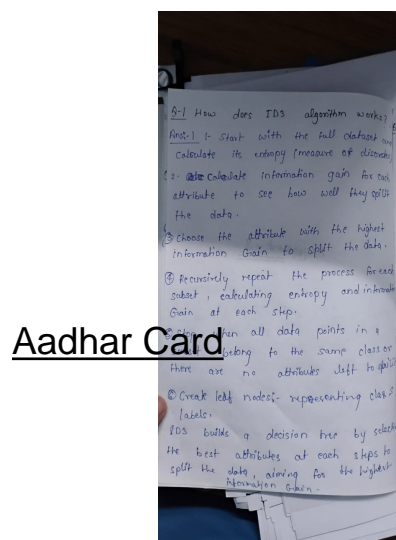 Q-1 How does ID3 algorithm works?
Ans:-1 1- Start with the full dataset and
calculate its entropy (measure of disorder)
2- Calculate information gain for each
attribute to see how well they split
the data.
③ Choose the attribute with the highest
information Gain to split the data.
④ Recursively repeat the process for each
subset, calculating entropy and
Gain at each step.
when all data points in a
belong to the same class or
there are no attributes left to
Aadhar Card
⑥ Creat leaf nodes:- representing class
labels.
ID3 builds a decision tree by
the best attributes at each steps to
split the data, aiming for the highest
information Gain.